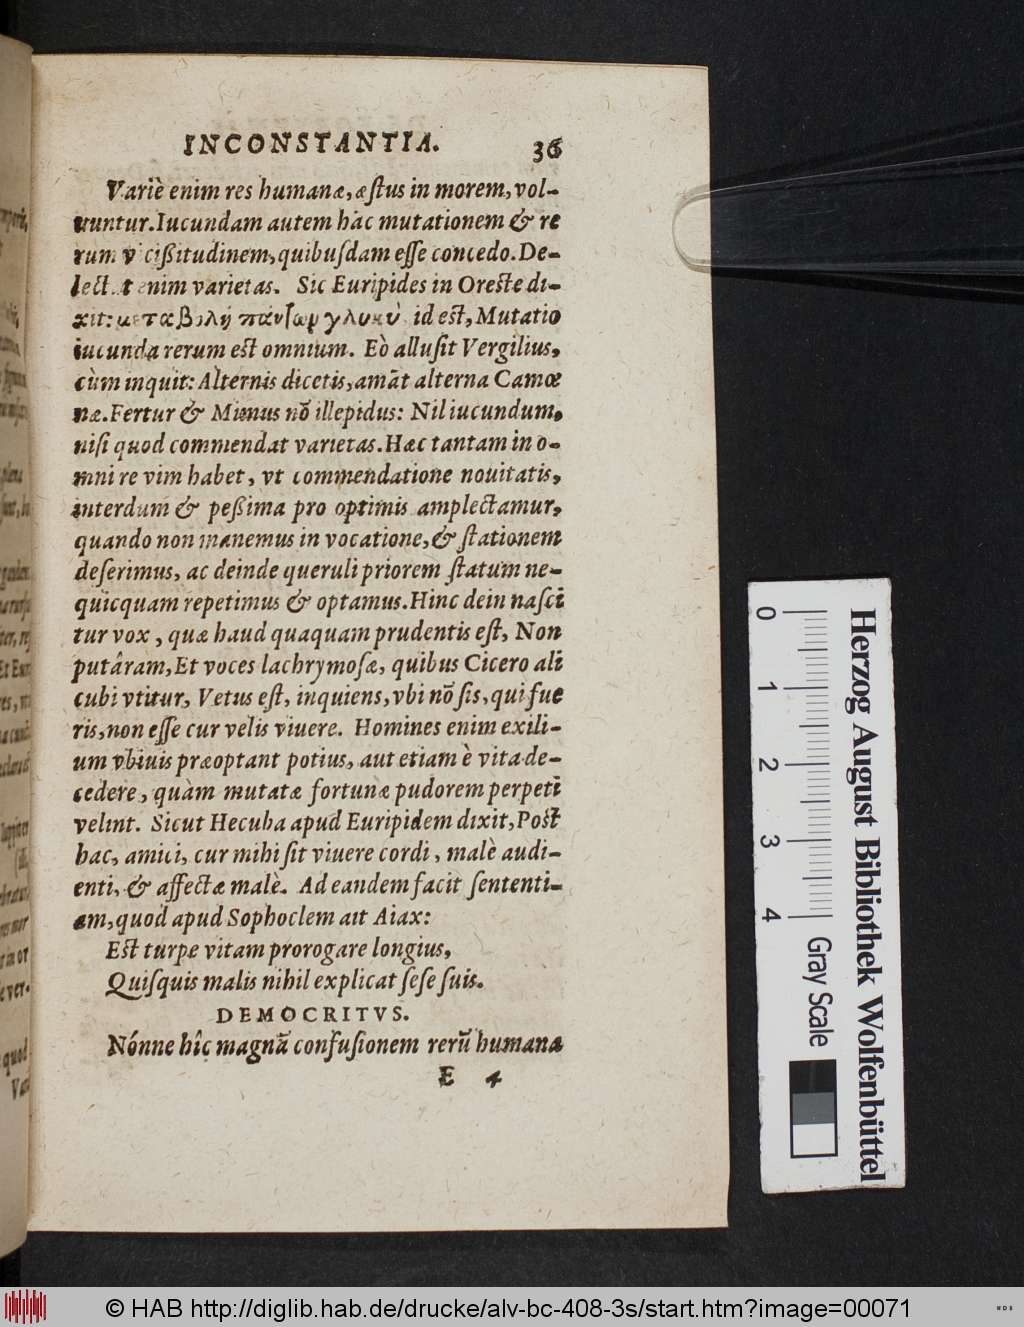 INCONSTANTIA. 36
Variè enim res humanæ, æſtus in morem, vol-
uuntur. Iucundam autem hac mutationem & re
rum viciſſitudinem, quibuſdam eſſe concedo. De-
lectat enim varietas. Sic Euripides in Oreſte di-
xit: μεταβολὴ πάντωρ γλυκύ id eſt, Mutatio
iucunda rerum eſt omnium. Eò alluſit Vergilius,
cùm inquit: Alternis dicetis, amāt alterna Camœ
næ. Fertur & Mimus nō illepidus: Nil iucundum,
niſi quod commendat varietas. Hæc tantam in o-
mni re vim habet, vt commendatione nouitatis,
interdum & peſſima pro optimis amplectamur,
quando non manemus in vocatione, & ſtationem
deſerimus, ac deinde queruli priorem ſtatum ne-
quicquam repetimus & optamus. Hinc dein naſci
tur vox, quæ haud quaquam prudentis eſt, Non
putâram, Et voces lachrymoſæ, quibus Cicero ali
cubi vtitur, Vetus eſt, inquiens, vbi nō ſis, qui fue
ris, non eſſe cur velis viuere. Homines enim exili-
um vbiuis præoptant potius, aut etiam è vita de-
cedere, quàm mutatæ fortunæ pudorem perpeti
velint. Sicut Hecuba apud Euripidem dixit, Poſt
hac, amici, cur mihi ſit viuere cordi, malè audi-
enti, & affectæ malè. Ad eandem facit ſententi-
am, quod apud Sophoclem ait Aiax:
Eſt turpe vitam prorogare longius,
Quiſquis malis nihil explicat ſeſe ſuis.
DEMOCRITVS.
Nónne hîc magnā confuſionem rerū humana
E 4
0 1 2 3 4 Gray Scale
Herzog August Bibliothek Wolfenbüttel
© HAB http://diglib.hab.de/drucke/alv-bc-408-3s/start.htm?image=00071